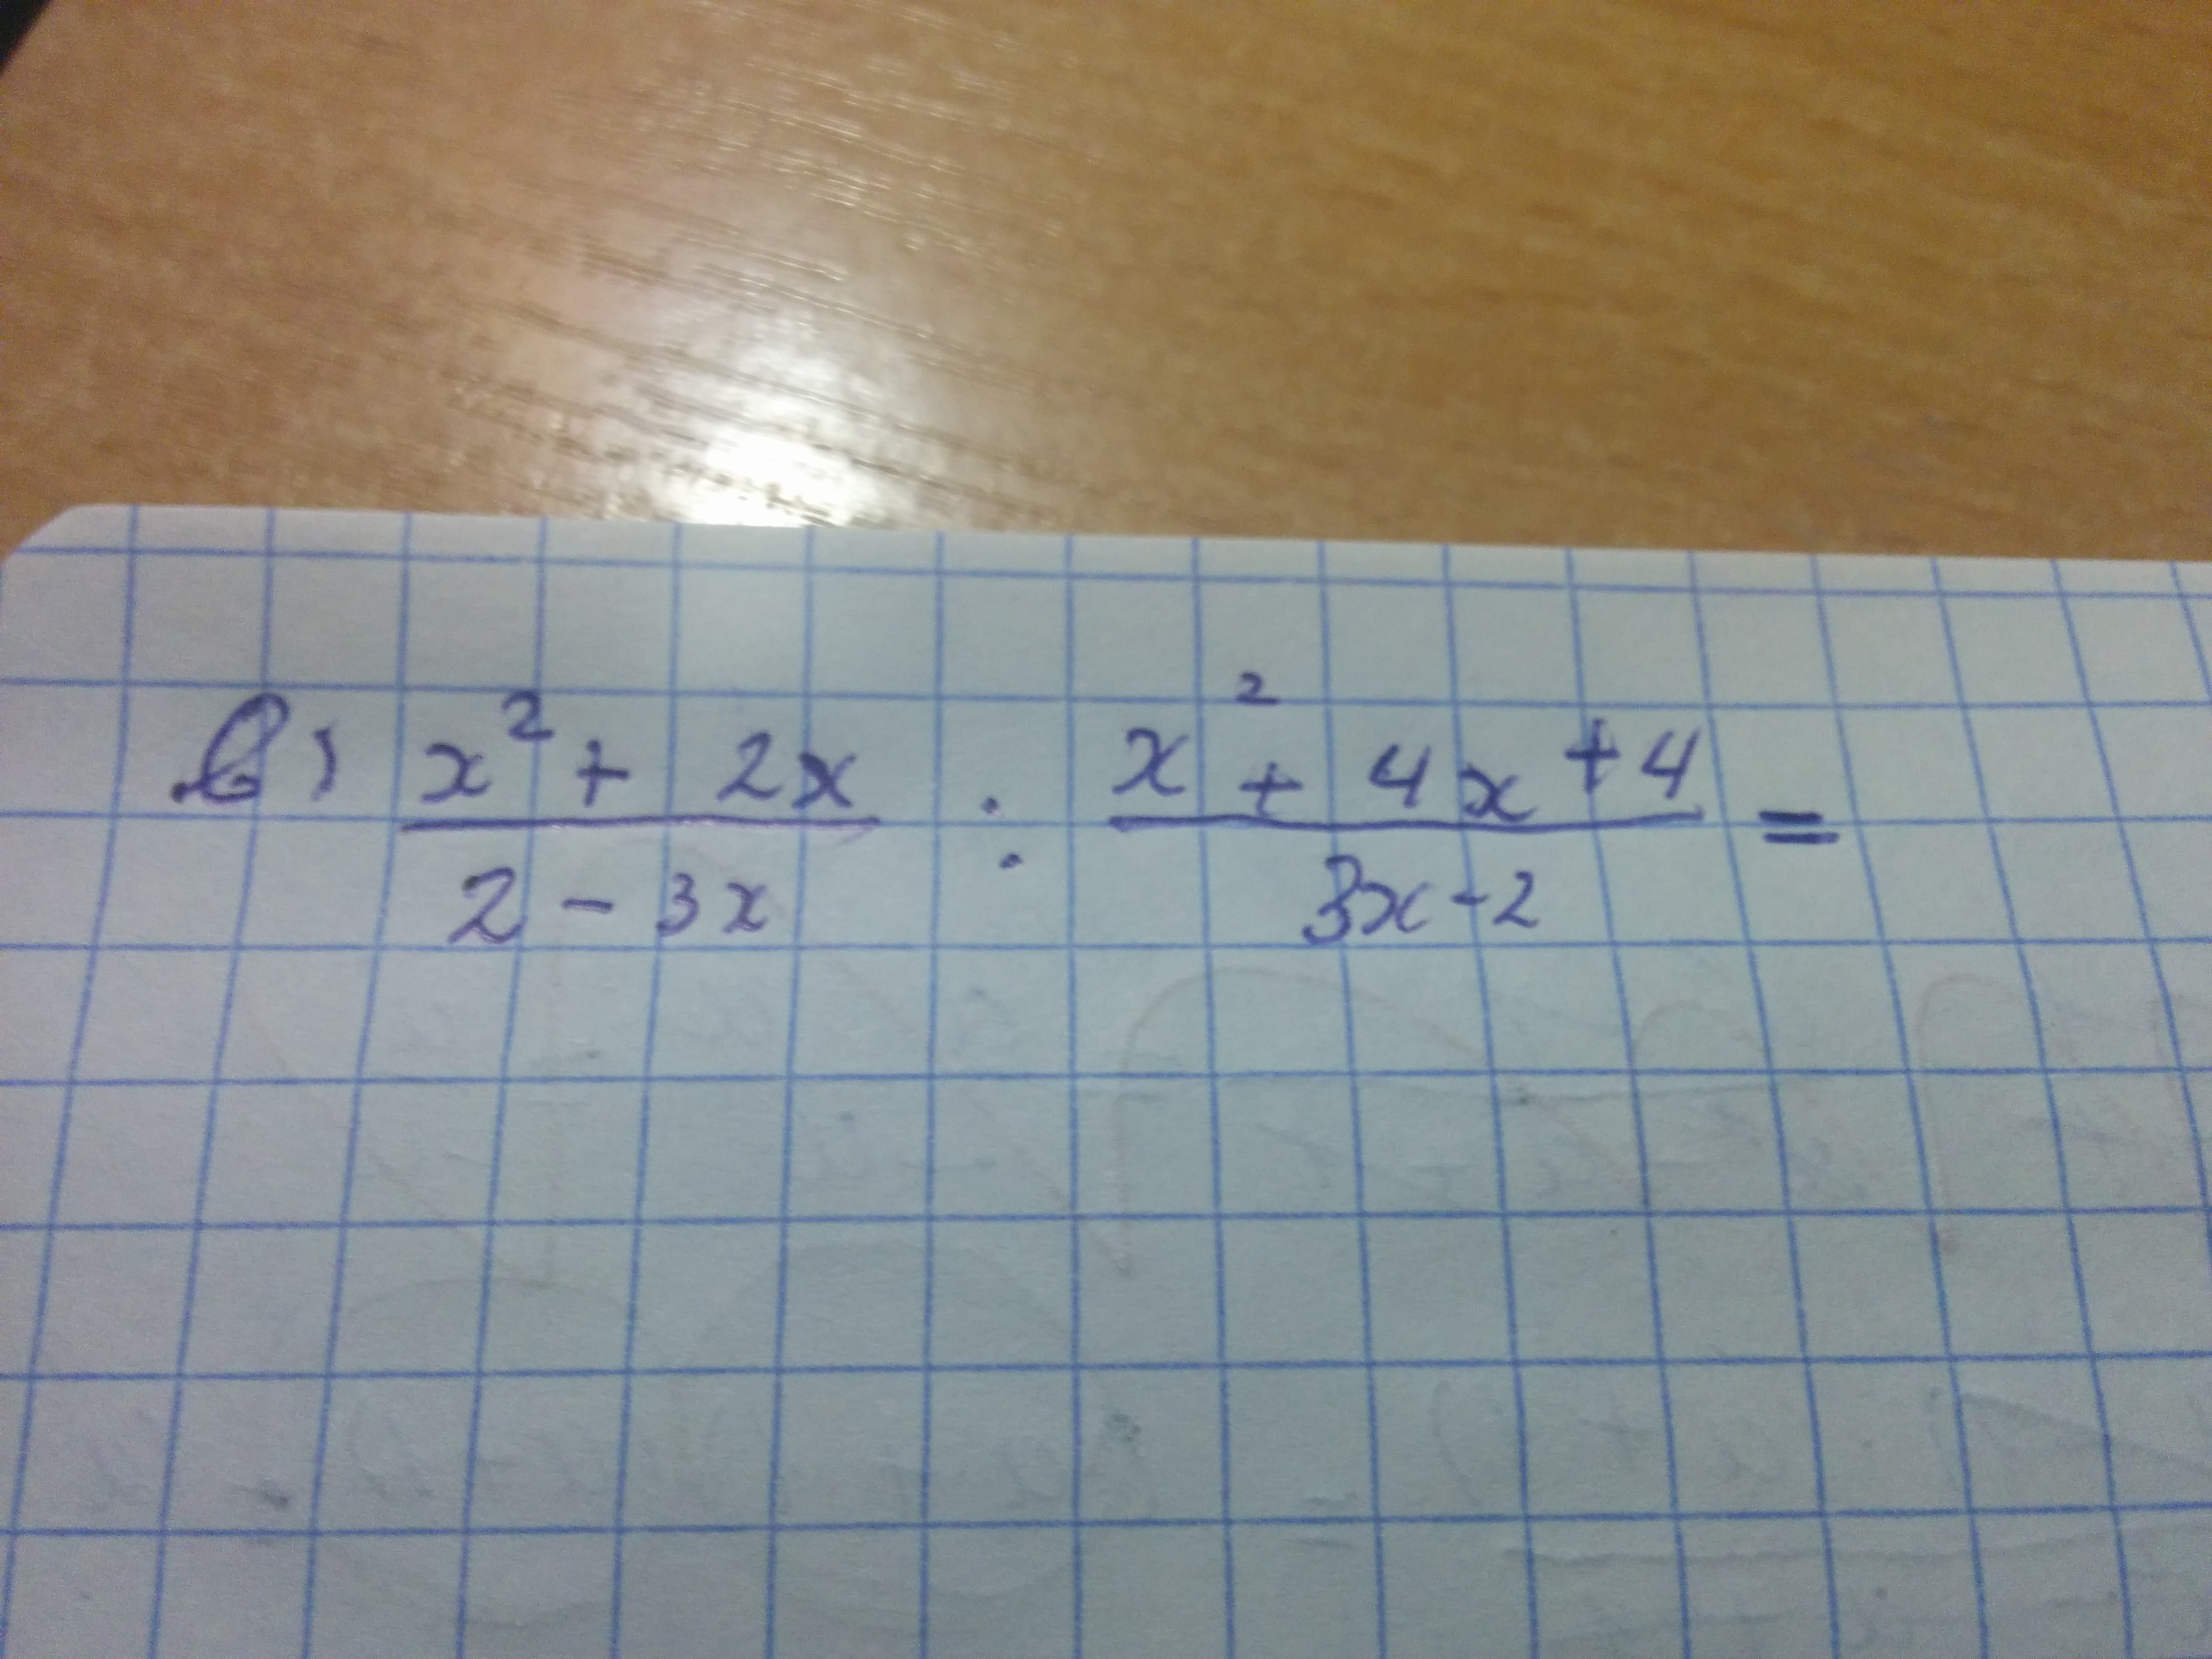 в) (x² + 2x)/(2 - 3x) : (x² + 4x + 4)/(3x - 2) =